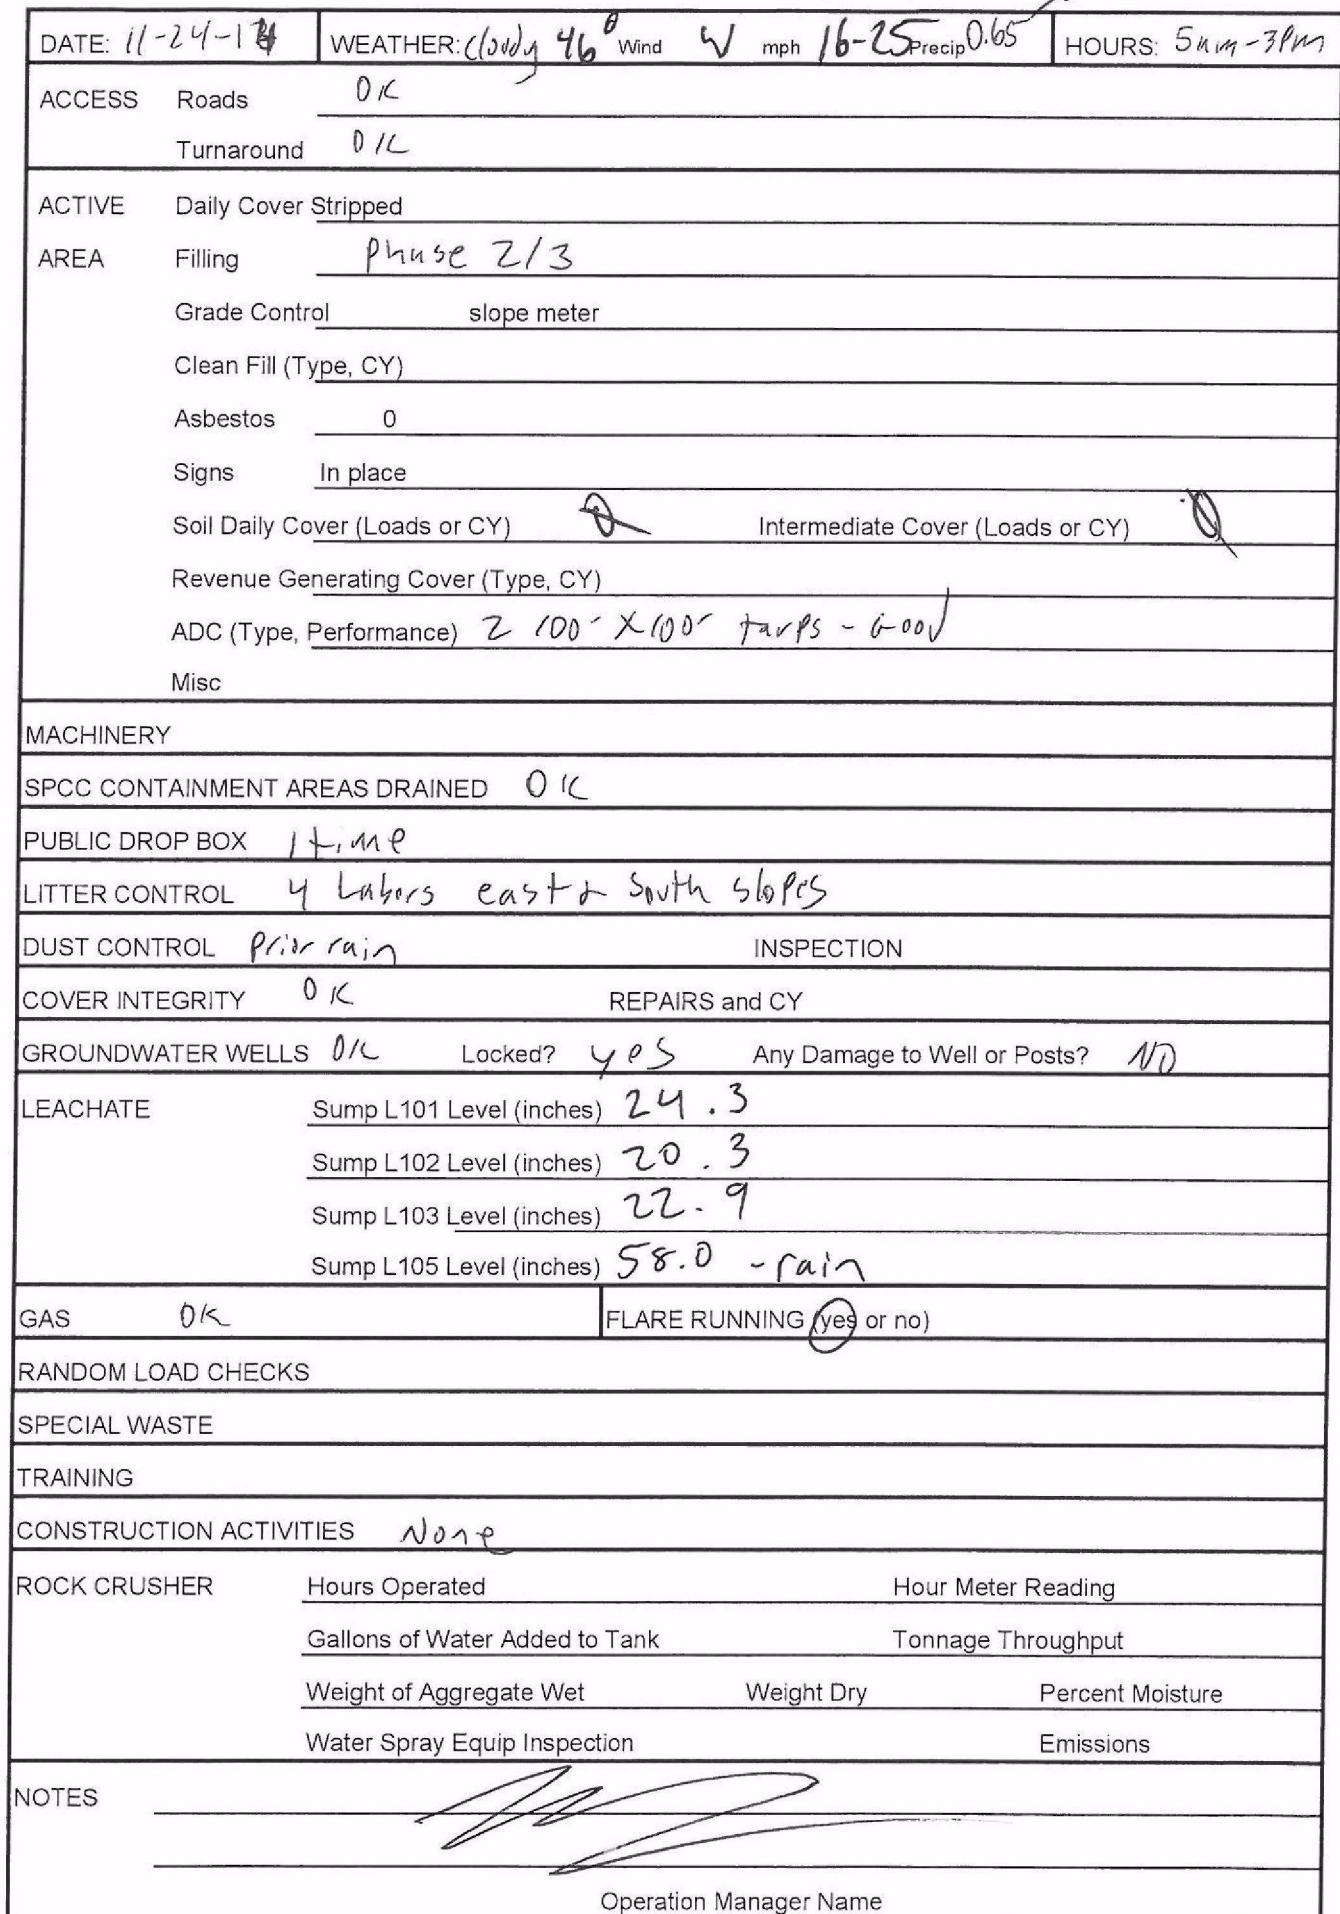 DATE: 11-24-17 WEATHER: Cloudy 46° Wind W mph 16-25 Precip 0.65 HOURS: 5am-3Pm
ACCESS Roads OK
Turnaround OK
ACTIVE Daily Cover Stripped
AREA Filling Phase 2/3
Grade Control slope meter
Clean Fill (Type, CY)
Asbestos 0
Signs In place
Soil Daily Cover (Loads or CY) 0 Intermediate Cover (Loads or CY) 0
Revenue Generating Cover (Type, CY)
ADC (Type, Performance) 2 100' X 100' tarps - Good
Misc
MACHINERY
SPCC CONTAINMENT AREAS DRAINED OK
PUBLIC DROP BOX 1 time
LITTER CONTROL 4 Labors east & South slopes
DUST CONTROL Prior rain INSPECTION
COVER INTEGRITY OK REPAIRS and CY
GROUNDWATER WELLS OK Locked? yes Any Damage to Well or Posts? NO
LEACHATE Sump L101 Level (inches) 24.3
Sump L102 Level (inches) 20.3
Sump L103 Level (inches) 22.9
Sump L105 Level (inches) 58.0 - rain
GAS OK FLARE RUNNING (yes or no)
RANDOM LOAD CHECKS
SPECIAL WASTE
TRAINING
CONSTRUCTION ACTIVITIES None
ROCK CRUSHER Hours Operated Hour Meter Reading
Gallons of Water Added to Tank Tonnage Throughput
Weight of Aggregate Wet Weight Dry Percent Moisture
Water Spray Equip Inspection Emissions
NOTES
Operation Manager Name